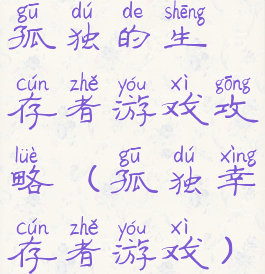 gū dú de shēng
孤独的生
cún zhě yóu xì gōng
存者游戏攻
lüè gū dú xìng
略（孤独幸
cún zhě yóu xì
存者游戏）